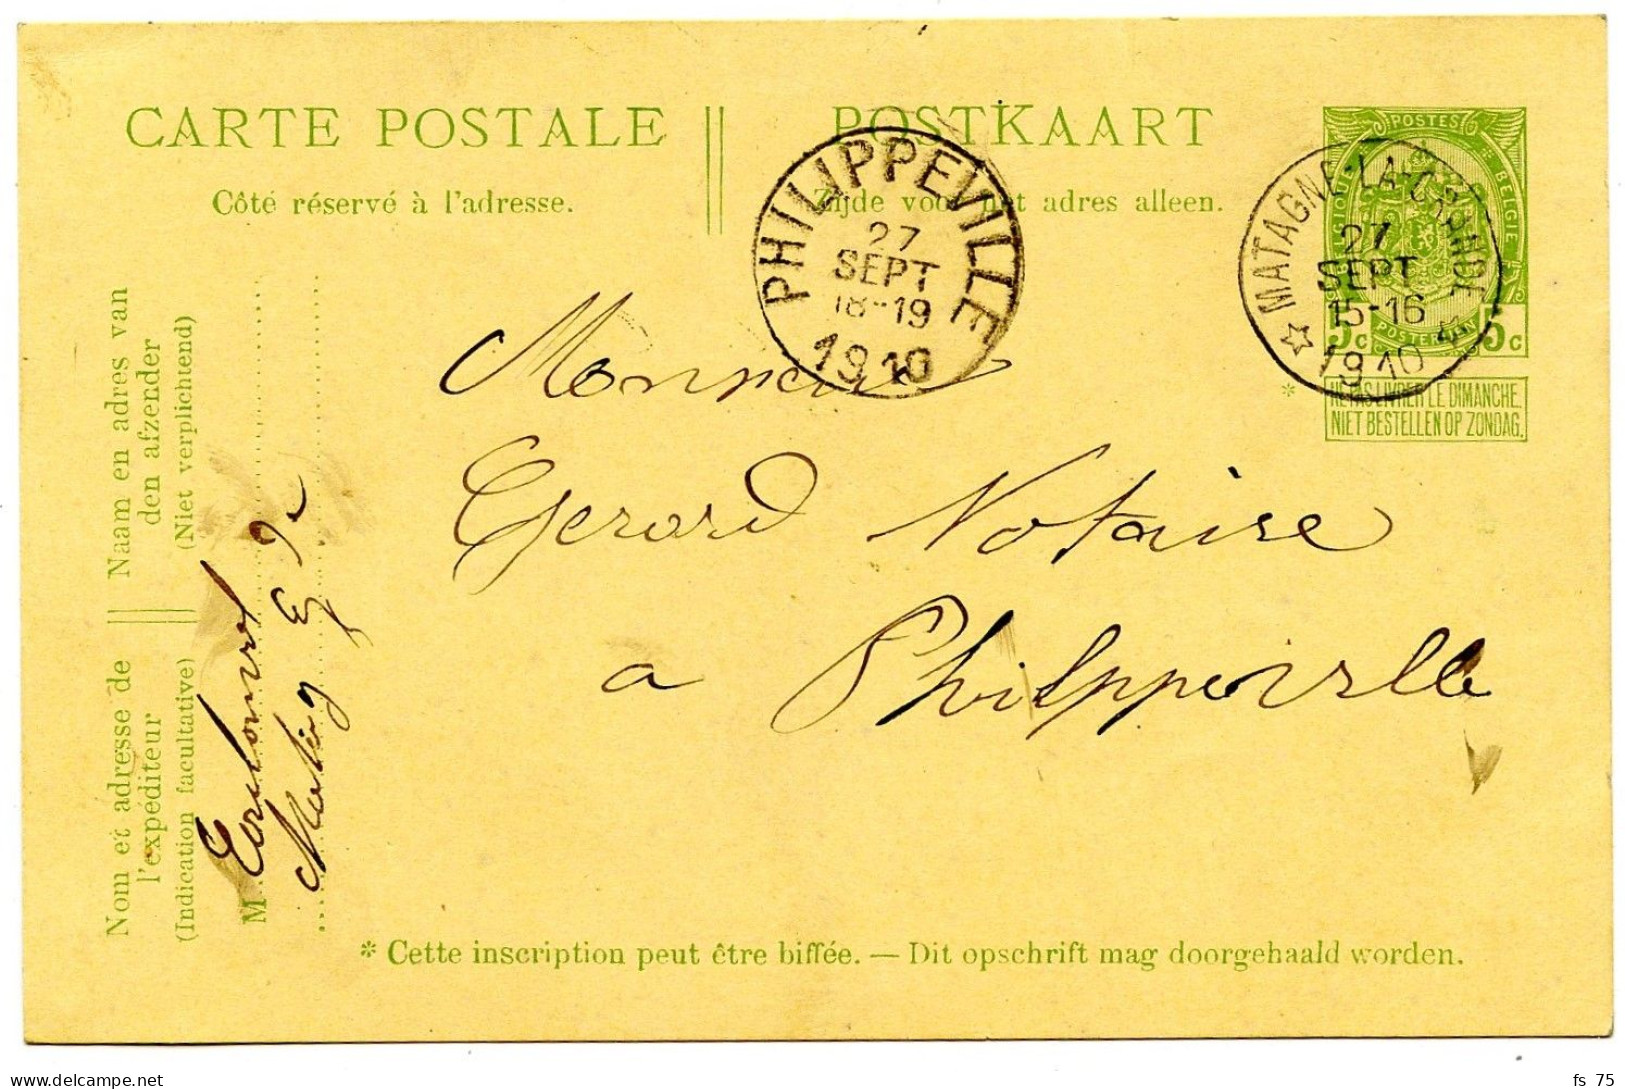 CARTE POSTALE
Côté réservé à l'adresse.
POSTKAART
Zijde voor het adres alleen.
PHILIPPEVILLE
27
SEPT
18-19
1910
MATAGNE-LA-GRANDE
27
SEPT
15-16
1910
POSTES
BELGIQUE
BELGIE
POSTERIJEN
5c
5c
* NE PAS LIVRER LE DIMANCHE.
NIET BESTELLEN OP ZONDAG.
Naam en adres van
den afzender
(Niet verplichtend)
Nom et adresse de
l'expéditeur
(Indication facultative)
M
Monsieur
Gerard Notaire
a Philippeville
* Cette inscription peut être biffée. — Dit opschrift mag doorgehaald worden.
fs 75